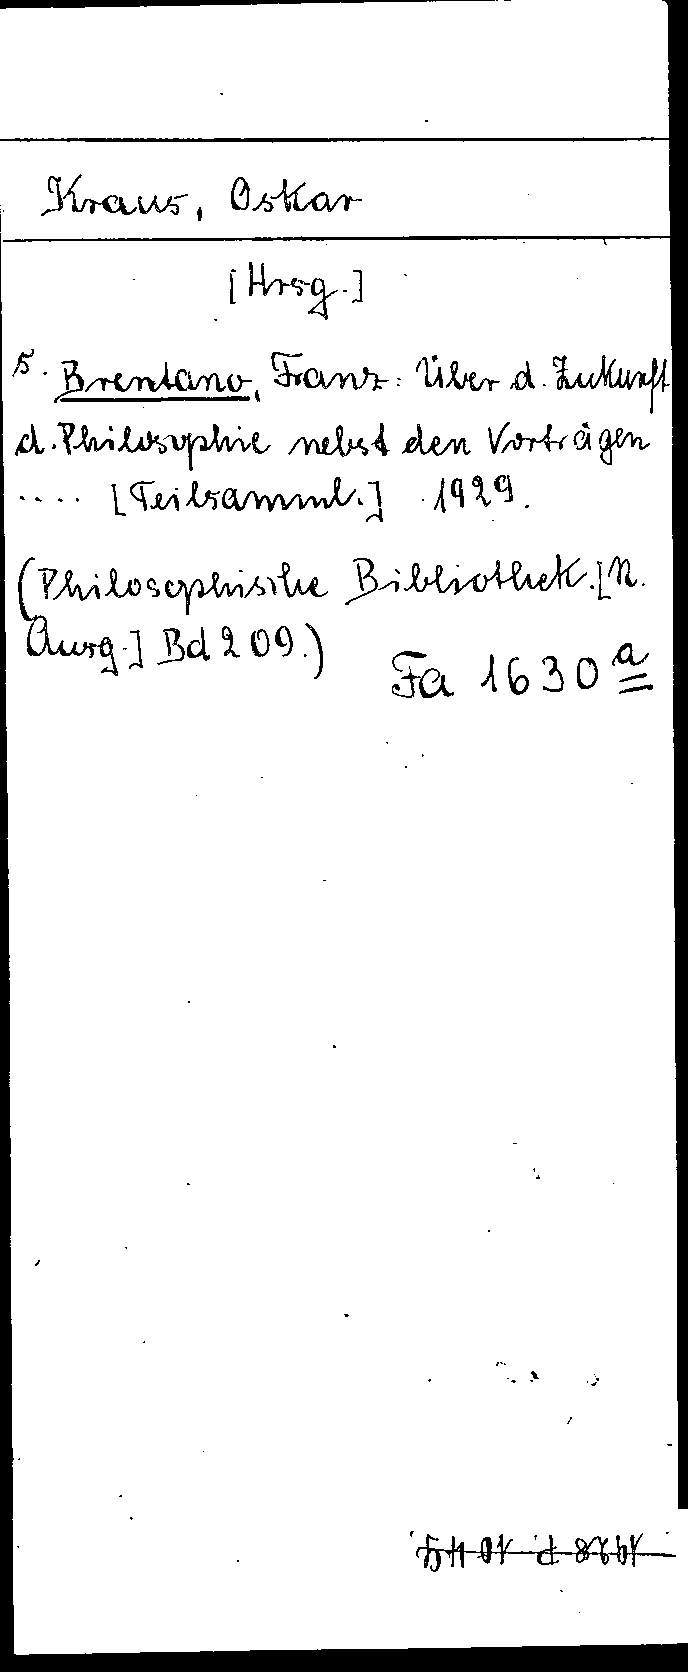 Kraus, Oskar
[Hrsg.]
5. Brentano, Franz: Über d. Zukunft
d. Philosophie nebst den Vorträgen
.... [Teilsamml.] 1929.
(Philosophische Bibliothek. [N.
Ausg.] Bd 209.)
Fa 1630 a